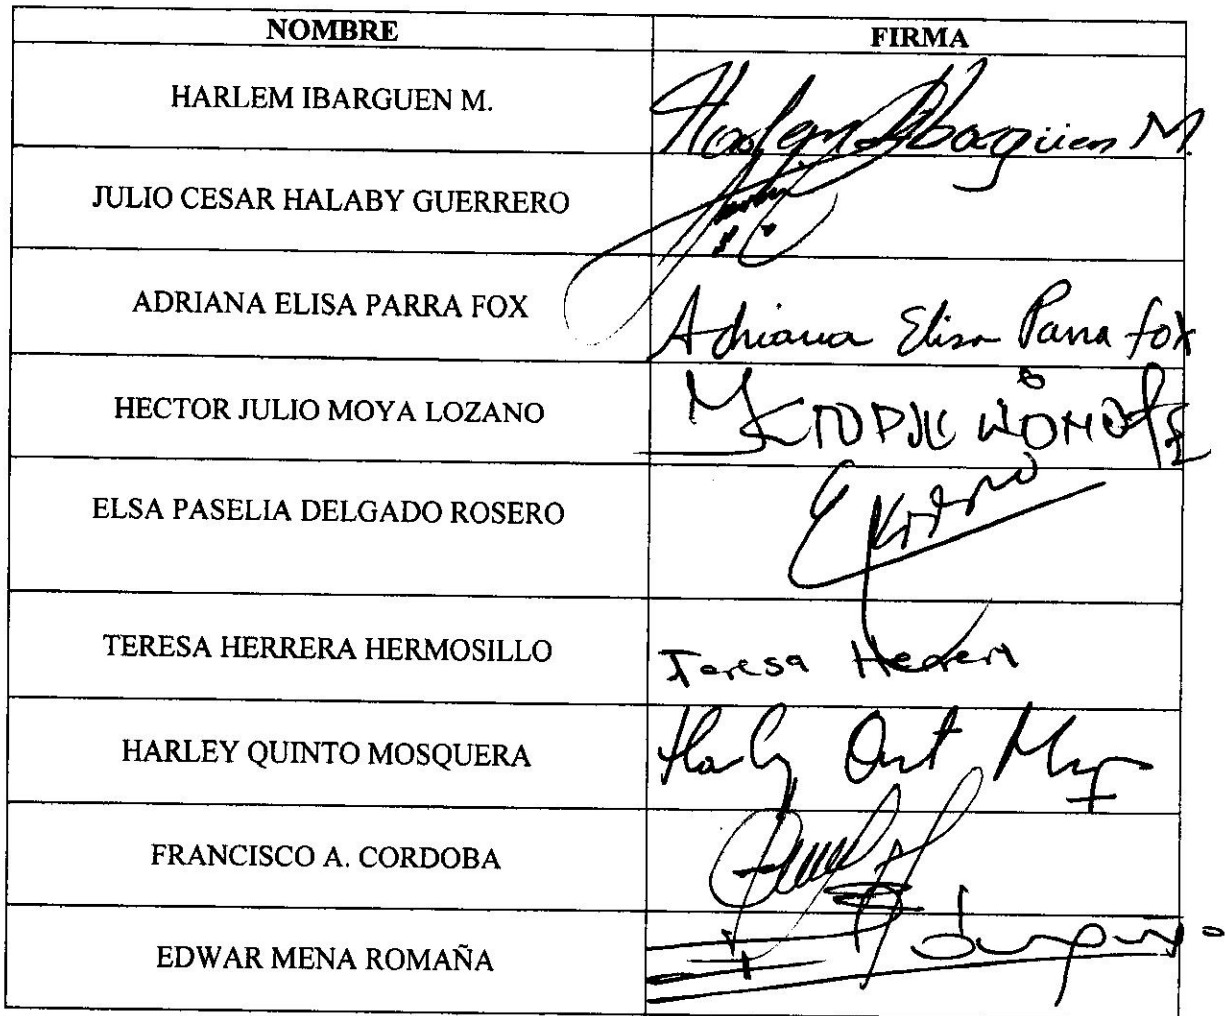 NOMBRE FIRMA
HARLEM IBARGUEN M. Harlem Ibarguen M.
JULIO CESAR HALABY GUERRERO
ADRIANA ELISA PARRA FOX Adriana Elisa Parra fox
HECTOR JULIO MOYA LOZANO
ELSA PASELIA DELGADO ROSERO
TERESA HERRERA HERMOSILLO Teresa Herrera
HARLEY QUINTO MOSQUERA
FRANCISCO A. CORDOBA
EDWAR MENA ROMAÑA